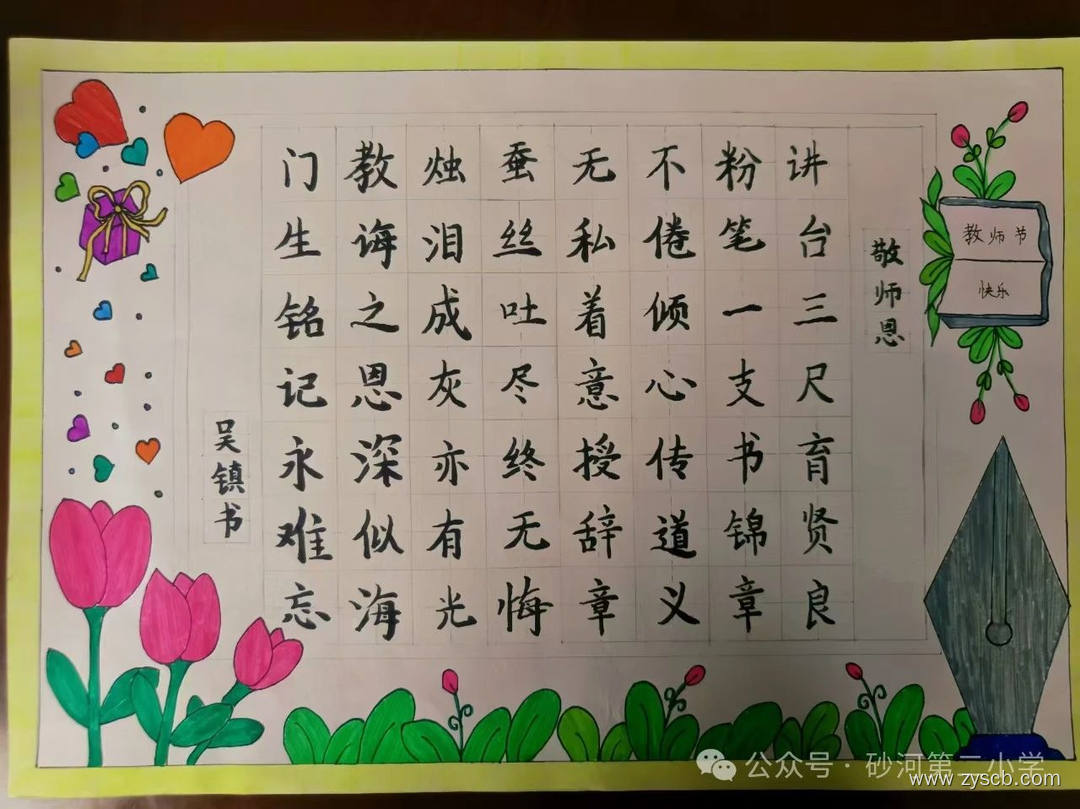 敬师恩
讲台三尺育贤良
粉笔一支书锦章
不倦倾心传道义
无私着意授辞章
蚕丝吐尽终无悔
烛泪成灰亦有光
教诲之恩深似海
门生铭记永难忘
吴镇书
教师节
快乐
公众号·砂河第二小学
www.zyscb.com